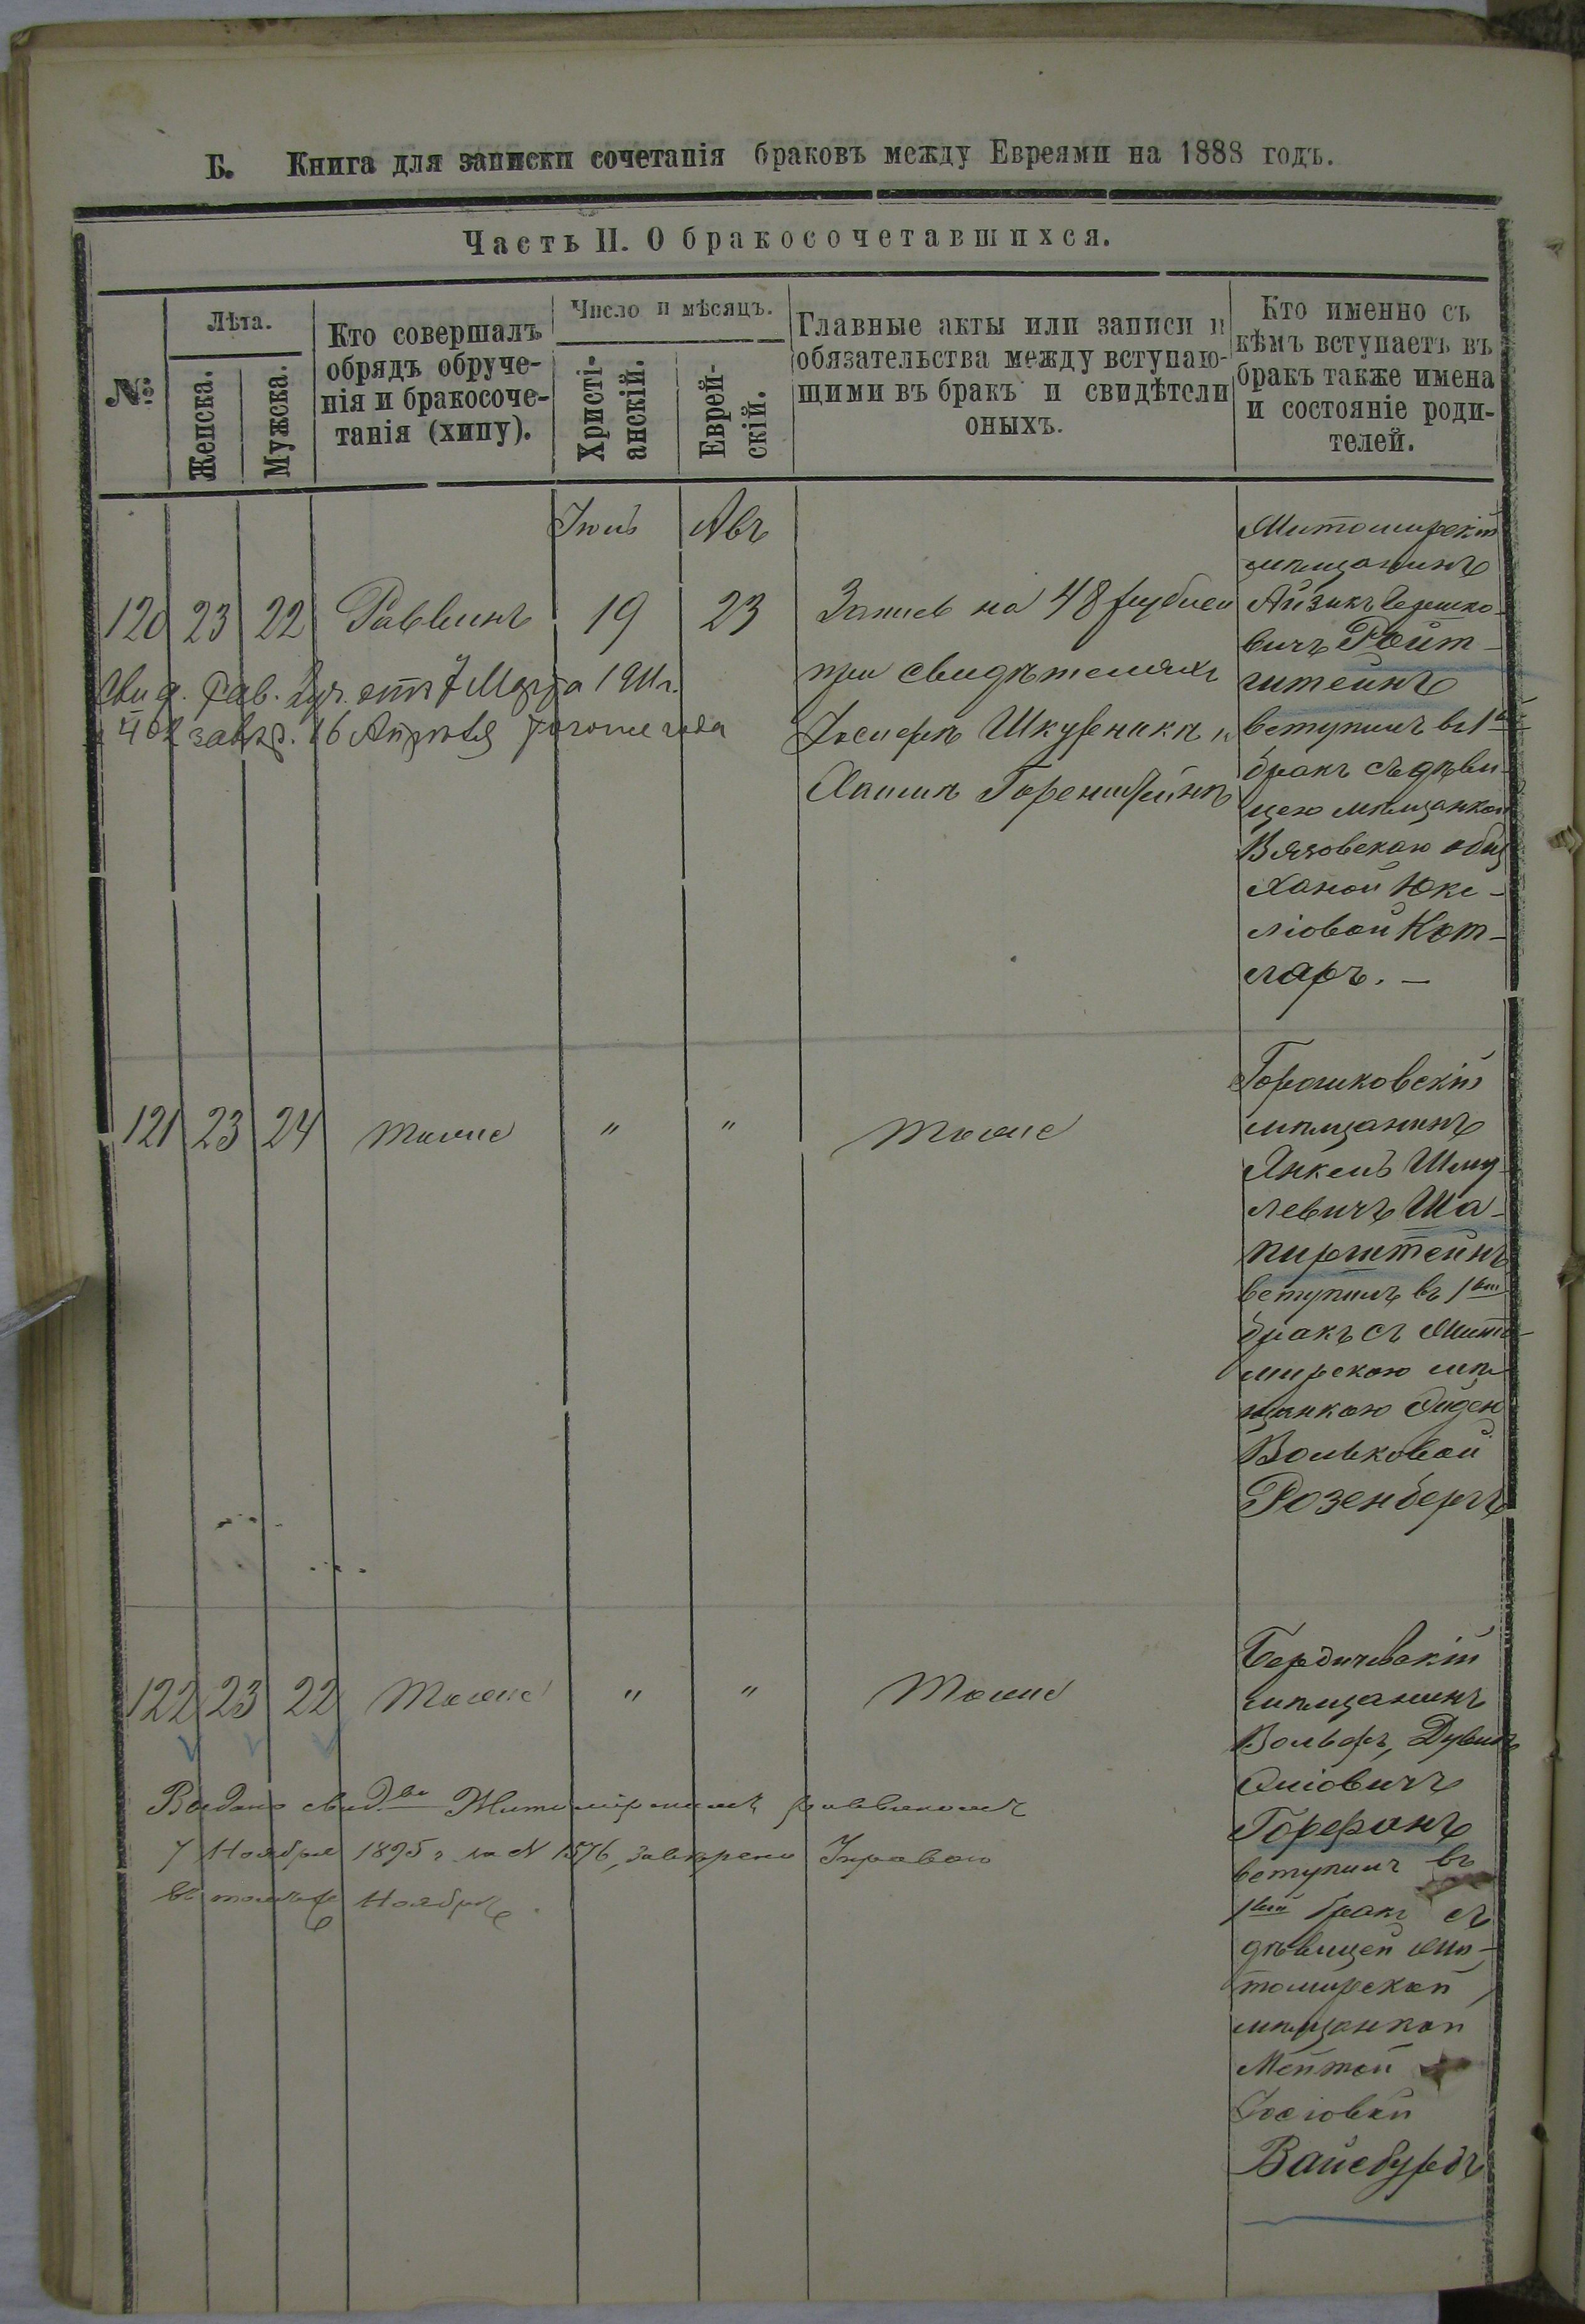 Б. Книга для записки сочетанія браковъ между Евреями на 1888 годъ.
Часть II. О бракосочетавшихся.
№
Лѣта.
Женска.
Мужска.
Кто совершалъ
обрядъ обруче-
нія и бракосоче-
танія (хипу).
Число и мѣсяцъ.
Христі-
анскій.
Еврей-
скій.
Главные акты или записи и
обязательства между вступаю-
щими въ бракъ и свидѣтели
оныхъ.
Кто именно съ
кѣмъ вступаетъ въ
бракъ также имена
и состояніе роди-
телей.
Іюль
Авъ
120 23 22 Раввинъ 19 23
Запись на 48 рублей
при свидѣтеляхъ
Іосифѣ Шкурникѣ и
Хаимѣ Горенштейнѣ
Житомирскій
мѣщанинъ
Айзикъ Гершко-
вичъ Ройт-
штейнъ
вступилъ въ 1й
бракъ съ дѣви-
цею мѣщанкой
Вязовскаго общ
Ханой Юке-
ліовой Кот-
ляръ. –
Свид. Рав. от 7 Марта 1911 г.
402 завѣр. 16 Апрѣля того же года
121 23 24 тоже " " тоже
Горошковскій
мѣщанинъ
Янкель Шму-
левичъ Ша-
пирштейнъ
вступилъ въ 1вый
бракъ съ Жито-
мирскою мѣ
щанкою
Вольковой
Розенбергъ
122 23 22 тоже " " тоже
Бердичевскій
мѣщанинъ
Вольфъ, Дувидъ
Гофманъ
вступилъ въ
1вый бракъ съ
дѣвицей Жи-
томирской
мѣщанкой
Мейтой
Іосіовей
Вайсбурдъ
Выдано свид-во Житомірскимъ раввиномъ
7 Ноября 1895 г. за N 1576, завѣрено Управою
въ томъ же Ноябрѣ.